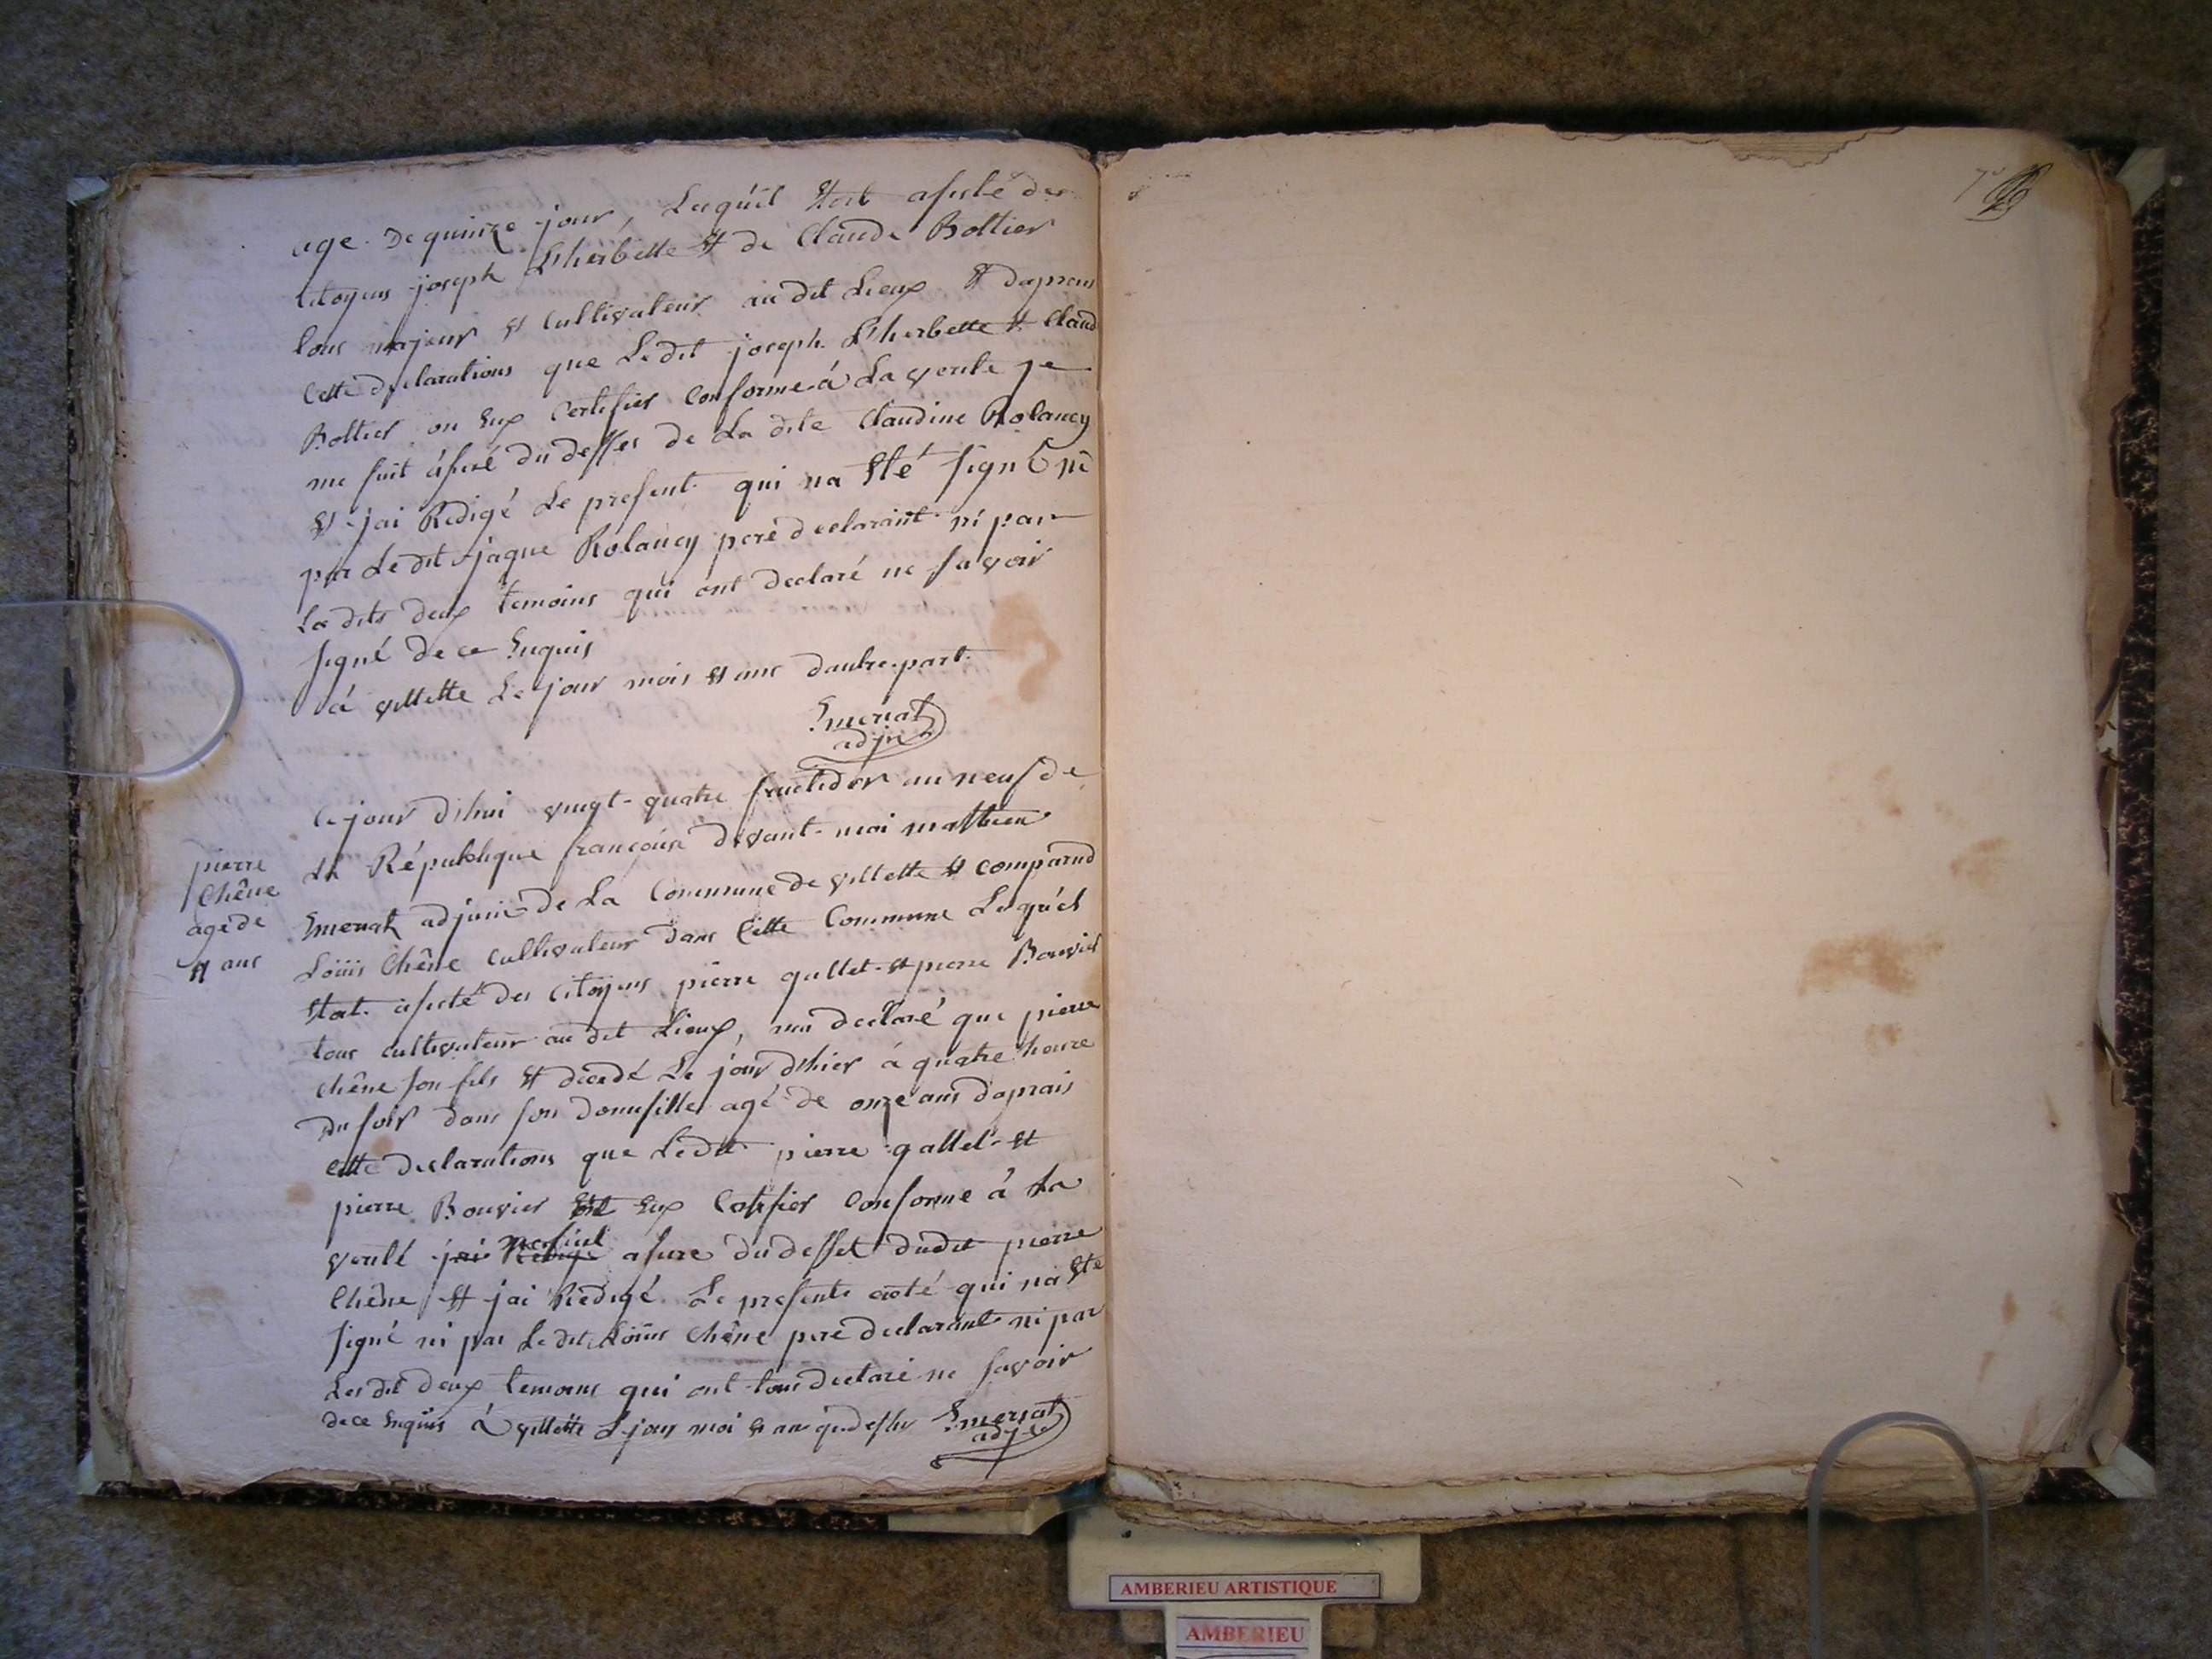 age de quinze jour, Lequél Etoit asisté des
Citoyens joseph L'herbette Et de Claude Bottier
tous majeur Et Cultivateur audit Lieux Et daprais
Cette declarations que Ledit joseph L'herbette Et Claud
Bottier on Eux Certifier Conforme á La verité je
me suit ásuré du desses de La dite Claudine Rolancy
Et jai Redigé Le present qui na Eté signé ni
par Ledit jaque Rolancy peré declarant ni par
La dits deux temoins qui ont declaré ne savoir
signé de ce Enquis
á villette Le jour mois Et ans dautre part
Emeriat
adjoint
Ce jour d'hui vingt-quatre fructidor an neuf de
La République françoise devant moi mathieu
pierre
Chêne
agé de
11 ans
Emeriat adjoint de La Commune de villette Et comparud
Loüis Chêne Cultivateur dans Cette Commune Lequél
Etoit asisté des Citoyens pierre gallet Et pierre Bouvier
tous cultivateur audit Lieux, ma declaré que pierre
Chêne son fils Et decedé Le jour d'hier á quatre heure
du soir dans son domesille agé de onze ans daprais
Cette declarations que Ledit pierre gallet Et
pierre Bouvier ont Eux Certifier Conforme á La
verité jai Redigé mesuit asure du desset dudit pierre
Chêne Et jai Redigé Le presente acte qui na Eté
signé ni par Le dit Loüis Chêne peré declarant ni par
Les dit deux temoins qui ont tous declaré ne savoir
de ce Enquis á villette Le jour moi Et an quedessus Emeriat
adjt
70
AMBERIEU ARTISTIQUE
AMBERIEU